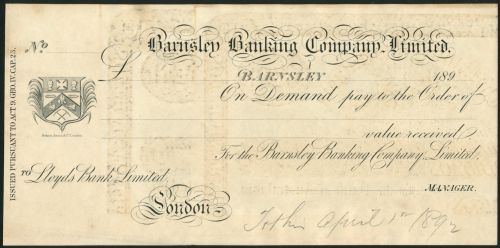 ISSUED PURSUANT TO ACT 9. GEO. IV. CAP. 23.
No
Barnsley Banking Company, Limited.
£
BARNSLEY 189
On Demand pay to the Order of
value received,
For the Barnsley Banking Company, Limited.
To Lloyds Bank Limited,
MANAGER.
London.
April 1st 1892